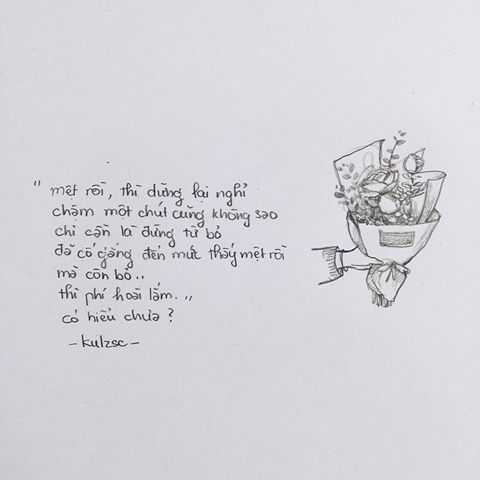 " mệt rồi, thì dừng lại nghỉ
chậm một chút cũng không sao
chỉ cần là đừng từ bỏ
đã cố gắng đến mức thấy mệt rồi
mà còn bỏ..
thì phí hoài lắm.,,
có hiểu chưa ?
- kulzsc -